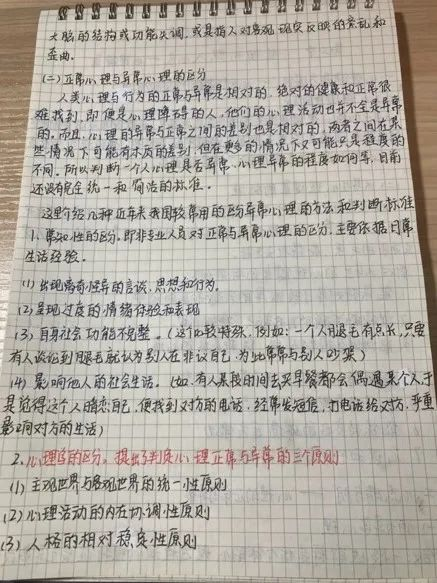 大脑的结构或功能失调，或是指人对客观现实反映的紊乱和
歪曲。
(二) 正常心理与异常心理的区分
人类心理与行为的正常与异常是相对的，绝对的健康和正常很
难找到，即便是心理障碍的人，他们的心理活动也并不全是异常
的。而且，心理的异常与正常之间的差别也是相对的，两者之间在某
些情况下可能有本质的差别，但在更多的情况下又可能只是程度的
不同。所以判断一个人心理是否异常、心理异常的程度如何等，目前
还没有完全统一和简洁的标准。
这里介绍几种近年来我国较常用的区分异常心理的方法和判断标准
1、常识性的区分。即非专业人员对正常与异常心理的区分，主要依据日常
生活经验。
(1) 出现离奇怪异的言谈、思想和行为。
(2) 呈现过度的情绪体验和表现
(3) 自身社会功能不完整。（这个比较特殊，例如：一个人腿毛有点长，只要
有人谈论到腿毛就认为别人在非议自己，为此常常与别人吵架）
(4) 影响他人的社会生活。（如，有人某段时间去买早餐都会偶遇某个人，于
是觉得这个人暗恋自己，便找到对方的电话，经常发短信、打电话给对方，严重
影响对方的生活）
2、心理学的区分。提出了判质心理正常与异常的三个原则
(1) 主观世界与客观世界的统一性原则
(2) 心理活动的内在协调性原则
(3) 人格的相对稳定性原则